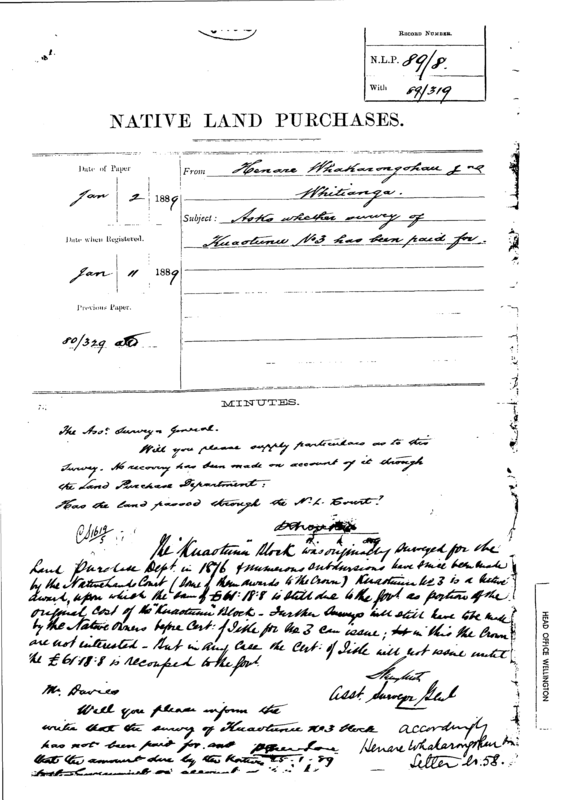 RECORD NUMBER.
N.L.P. 89/8.
With 89/319
NATIVE LAND PURCHASES.
Date of Paper
Jan 2 1889
Date when Registered.
Jan 11 1889
Previous Paper.
80/329
From Henare Whakarongohau
Whitianga.
Subject: Asks whether survey of
Kuaotunu No 3 has been paid for.
MINUTES.
The Asst. Surveyor General.
Will you please supply particulars as to this
Survey. No recovry has been made on account of it through
the Land Purchase Department.
Has the land passed through the N. L. Court?
The "Kuaotunu" Block was originally surveyed for the
Land Purchase Dept. in 1876 & numerous subdivisions have since been made
by the Native Lands Court (some of them awards to the Crown) Kuaotunu No 3 is a Native
award, upon which the sum of £61.18.8 is still due to the Govt as portion of the
original cost of the "Kuaotunu" Block - Further Surveys will still have to be made
by the Native Owners before Cert: of Title for No 3 can issue; in this the Crown
are not interested - But in any case the Cert: of Title will not issue until
the £61.18.8 is recouped to the Govt
Asst. Surveyor Genl
Mr. Davies
Will you please inform the
writer that the survey of Kuaotunu No 3 block
has not been paid for and
that the amount due by the Natives 25.1.89
accordingly
Henare Whakarongohau
Letter No. 58.
HEAD OFFICE WELLINGTON